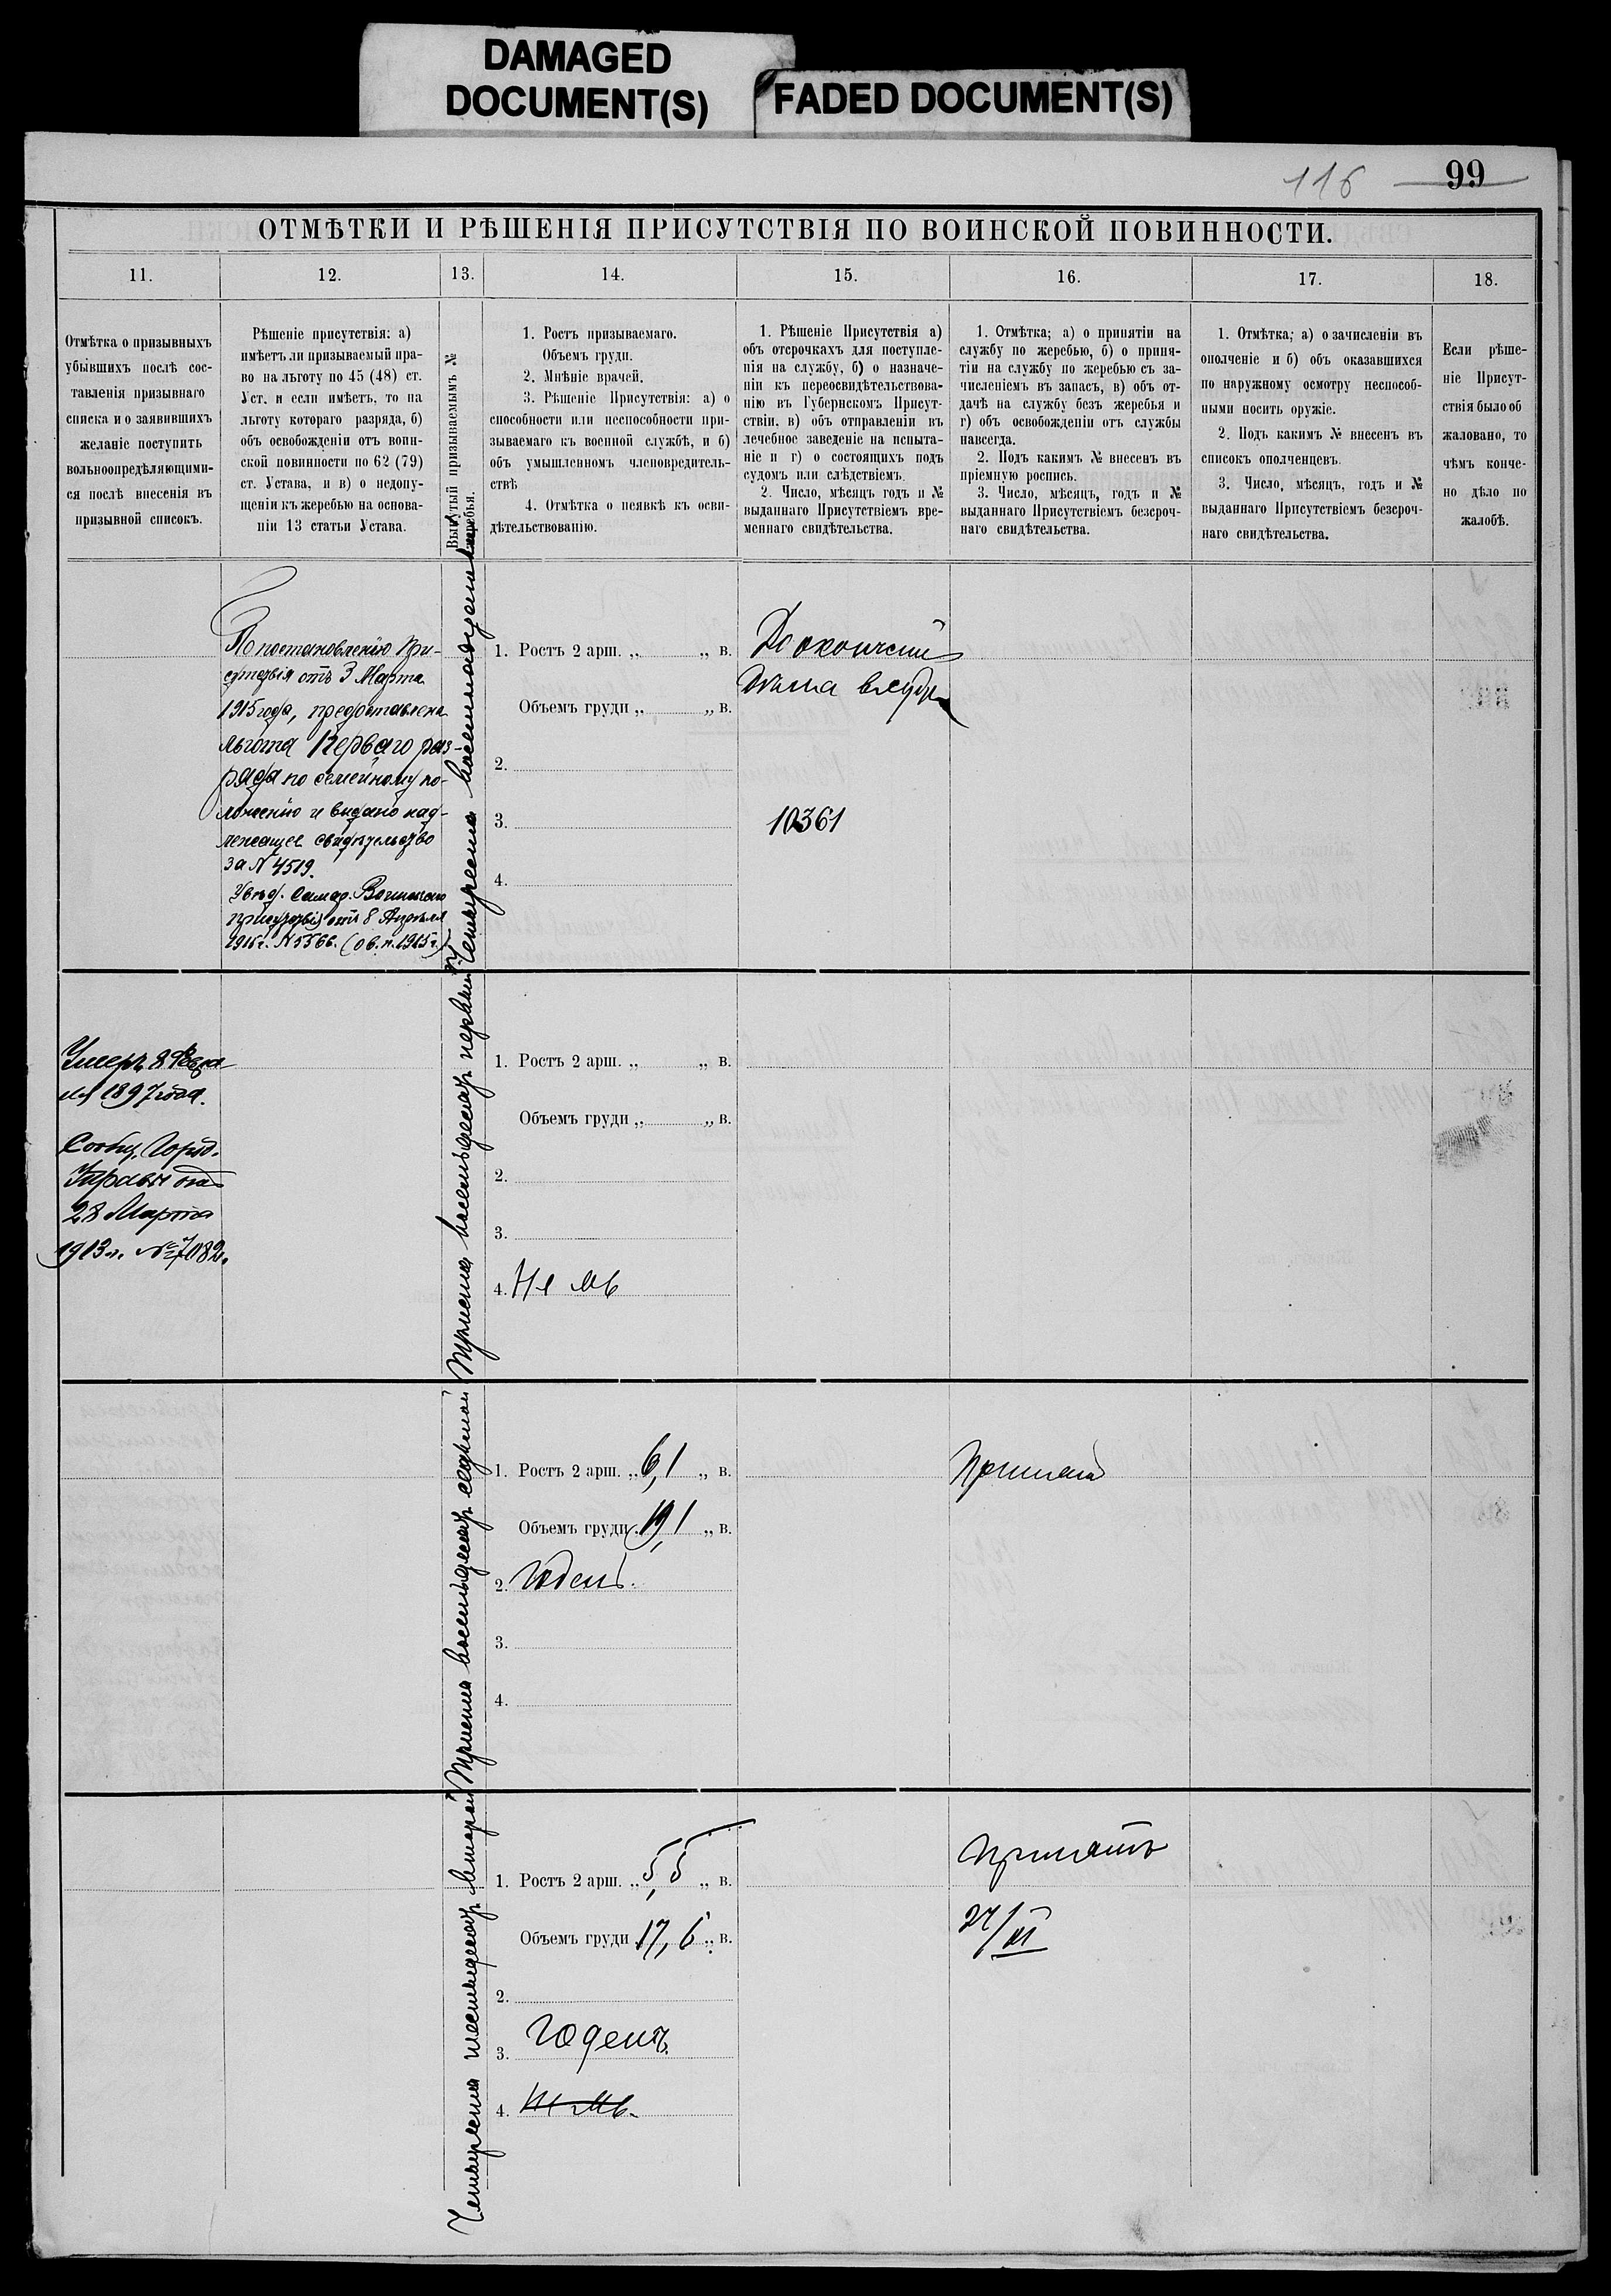 DAMAGED
DOCUMENT(S)
FADED DOCUMENT(S)
116 99
ОТМѢТКИ И РѢШЕНІЯ ПРИСУТСТВІЯ ПО ВОИНСКОЙ ПОВИННОСТИ.
11. 12. 13. 14. 15. 16. 17. 18.
Отмѣтка о призывныхъ
убывшихъ послѣ сос-
тавленія призывнаго
списка и о заявившихъ
желаніе поступить
вольноопредѣляющими-
ся послѣ внесенія въ
призывной списокъ.
Рѣшеніе присутствія: а)
имѣетъ ли призываемый пра-
во на льготу по 45 (48) ст.
Уст. и если имѣетъ, то на
льготу котораго разряда, б)
объ освобожденіи отъ воин-
ской повинности по 62 (79)
ст. Устава, и в) о недопу-
щеніи къ жеребью на основа-
ніи 13 статьи Устава.
Вынутый призываемымъ №
жеребья.
1. Ростъ призываемаго.
Объемъ груди.
2. Мнѣніе врачей.
3. Рѣшеніе Присутствія: а) о
способности или неспособности при-
зываемаго къ военной службѣ, и б)
объ умышленномъ членовредитель-
ствѣ
4. Отмѣтка о неявкѣ къ осви-
дѣтельствованію.
1. Рѣшеніе Присутствія а)
объ отсрочкахъ для поступле-
нія на службу, б) о назначе-
ніи къ переосвидѣтельствова-
нію въ Губернскомъ Присут-
ствіи, в) объ отправленіи въ
лечебное заведеніе на испыта-
ніе и г) о состоящихъ подъ
судомъ или слѣдствіемъ.
2. Число, мѣсяцъ годъ и №
выданнаго Присутствіемъ вре-
меннаго свидѣтельства.
1. Отмѣтка; а) о принятіи на
службу по жеребью, б) о приня-
тіи на службу по жеребью съ за-
численіемъ въ запасъ, в) объ от-
дачѣ на службу безъ жеребья и
г) объ освобожденіи отъ службы
навсегда.
2. Подъ какимъ № внесенъ въ
пріемную роспись.
3. Число, мѣсяцъ, годъ и №
выданнаго Присутствіемъ безсроч-
наго свидѣтельства.
1. Отмѣтка; а) о зачисленіи въ
ополченіе и б) объ оказавшихся
по наружному осмотру неспособ-
ными носить оружіе.
2. Подъ какимъ № внесенъ въ
списокъ ополченцевъ.
3. Число, мѣсяцъ, годъ и №
выданнаго Присутствіемъ безсроч-
наго свидѣтельства.
Если рѣше-
ніе Присут-
ствія было об
жаловано, то
чѣмъ конче-
но дѣло по
жалобѣ.
По постановленію При-
сутствія отъ 3 Марта
1915 года, предоставлена
льгота Перваго раз-
ряда по семейному по-
ложенію и выдано над-
лежащее свидѣтельство
за № 4519.
Увѣд. Самар. Воинскаго
присутствія отъ 8 Апрѣля
1915 г. № 5566.
Четыреста восемнадцатый
1. Ростъ 2 арш. „ „ в.
Объемъ груди „ „ в.
2.
3.
4.
До окончанія
10361
Умеръ 8 Февра
ля 1897 года.
Сообщ. Город.
Управы отъ
28 Марта
1913 г. № 7082.
Триста восемьдесятъ первый
1. Ростъ 2 арш. „ „ в.
Объемъ груди „ „ в.
2.
3.
4. Не яв
Триста восемьдесятъ седьмой
1. Ростъ 2 арш. „ 6,1 „ в.
Объемъ груди 19,1 „ в.
2. Годенъ.
3.
4.
Принятъ
Четыреста шестьдесятъ второй
1. Ростъ 2 арш. „ 5,5 „ в.
Объемъ груди 17,6 „ в.
2.
3. Годенъ.
4. Не яв.
Принятъ
27/XI